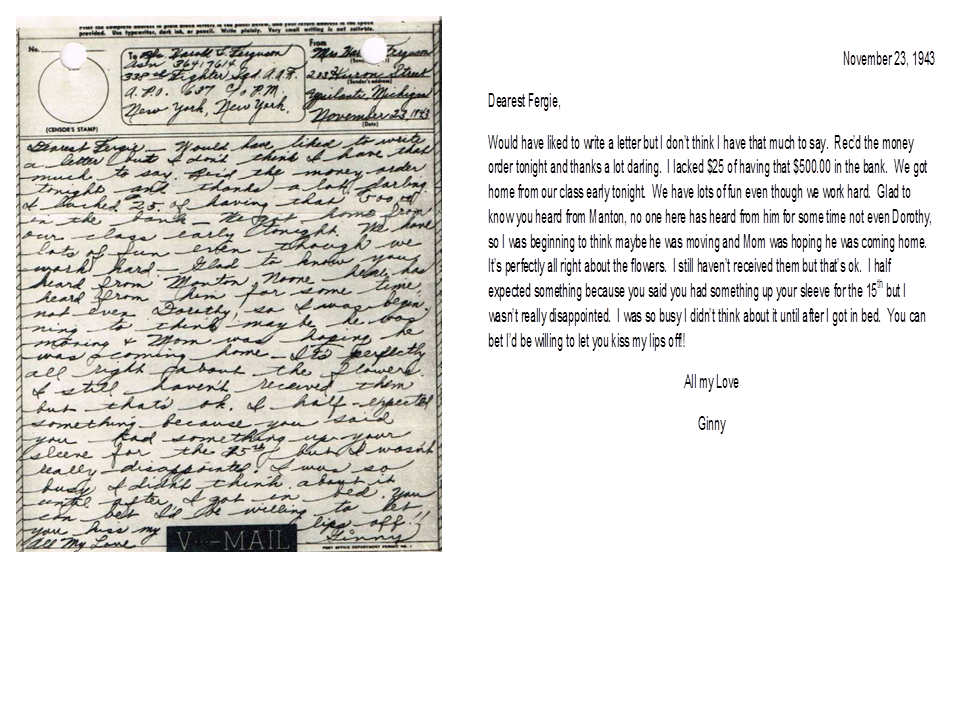 Print the complete address in plain block letters in the panel below, and your return address in the space
provided. Use typewriter, dark ink, or pencil. Write plainly. Very small writing is not suitable.
No.
(CENSOR'S STAMP)
To Pfc. Harold L. Ferguson
Asn 36417614
338th Fighter Sqd. A.A.F.
A.P.O. 637 c/o P.M.
New York, New York.
From
Mrs Ferguson
(Sender's name)
203 Huron Street
(Sender's address)
Ypsilanti, Michigan
November 23, 1943
(Date)
Dearest Fergie – Would have liked to write
a letter but I don't think I have that
much to say. Rec'd the money order
tonight and thanks a lot darling
I lacked $25 of having that $500.00
in the bank – We got home from
our class early tonight. We have
lots of fun even though we
work hard – Glad to know you
heard from Manton, Noone here has
heard from him for some time,
not even Dorothy, so I was begin-
ning to think maybe he was
moving & Mom was hoping he
was coming home – It's perfectly
all right about the flowers.
I still haven't received them
but that's ok. I half-expected
something because you said
you had something up your
sleeve for the 15th but I wasn't
really disappointed. I was so
busy I didn't think about it
until after I got in bed. You
can bet I'd be willing to let
you kiss my lips off!!
All My Love Ginny
V···–MAIL
POST OFFICE DEPARTMENT PERMIT NO. 1
November 23, 1943
Dearest Fergie,
Would have liked to write a letter but I don't think I have that much to say. Rec'd the money
order tonight and thanks a lot darling. I lacked $25 of having that $500.00 in the bank. We got
home from our class early tonight. We have lots of fun even though we work hard. Glad to
know you heard from Manton, no one here has heard from him for some time not even Dorothy,
so I was beginning to think maybe he was moving and Mom was hoping he was coming home.
It's perfectly all right about the flowers. I still haven't received them but that's ok. I half
expected something because you said you had something up your sleeve for the 15th but I
wasn't really disappointed. I was so busy I didn't think about it until after I got in bed. You can
bet I'd be willing to let you kiss my lips off!!
All my Love
Ginny